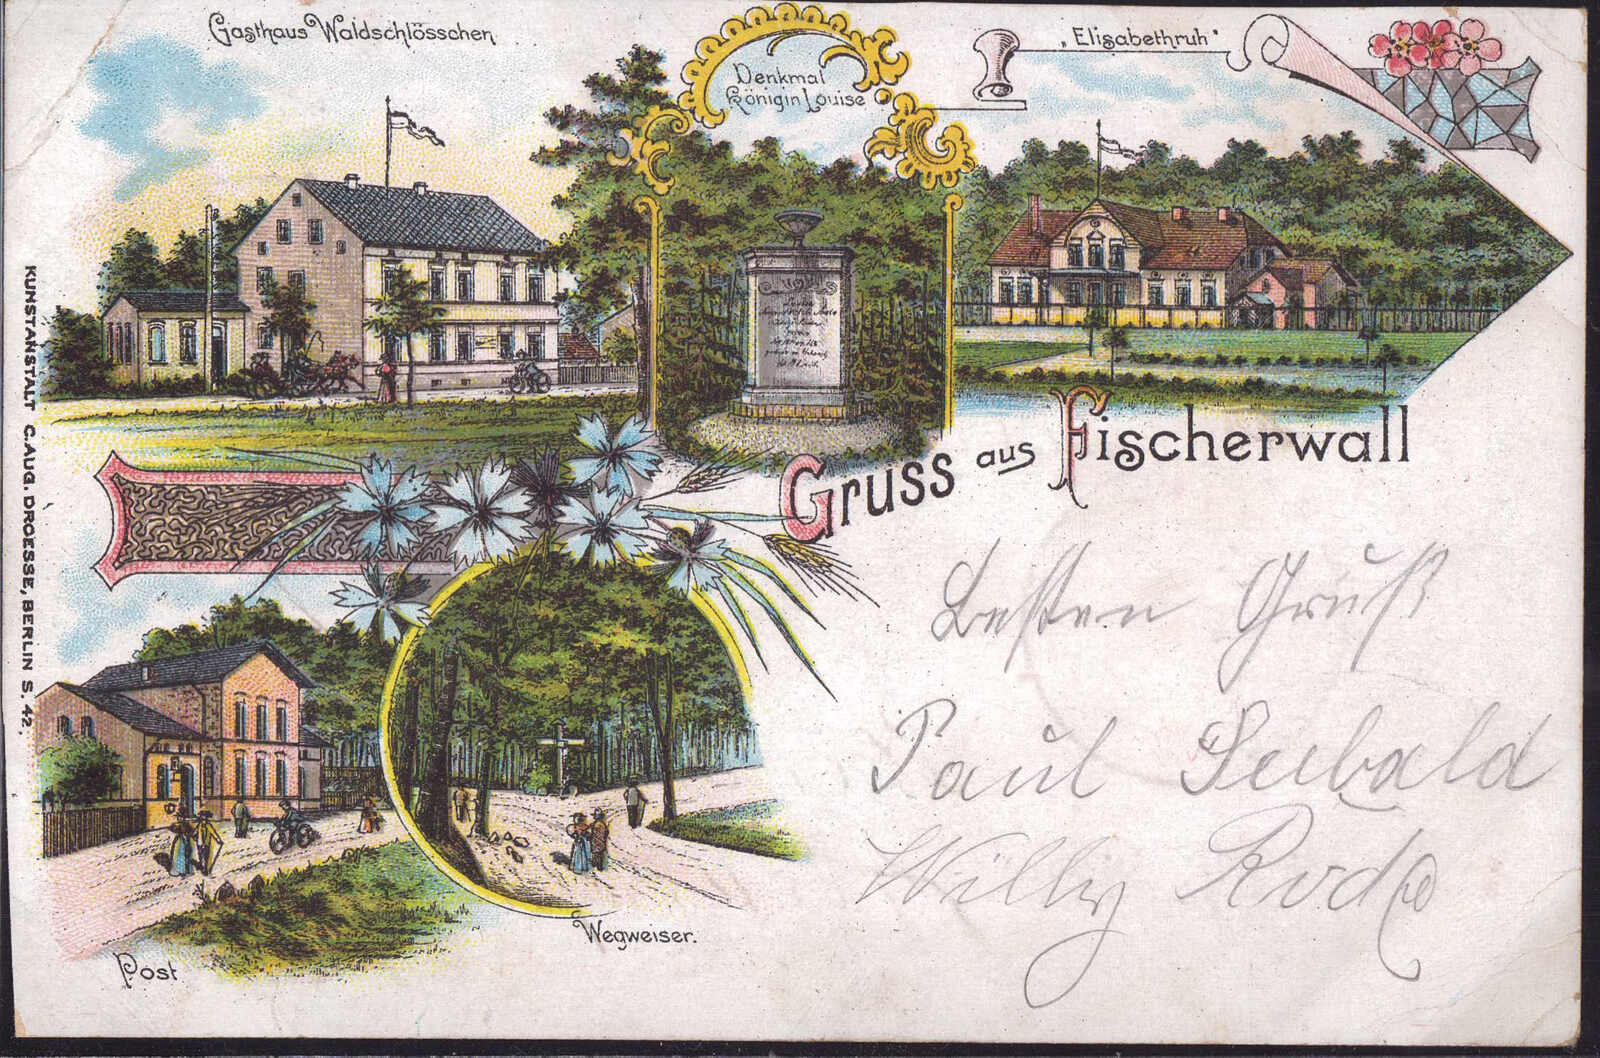 Gasthaus Waldschlösschen
Denkmal
Königin Louise
„Elisabethruh"
Gruss aus Fischerwall
Besten Gruß
Paul Seebald
Willy Rode
Post
Wegweiser.
KUNSTANSTALT C. AUG. DROESSE, BERLIN S. 42.